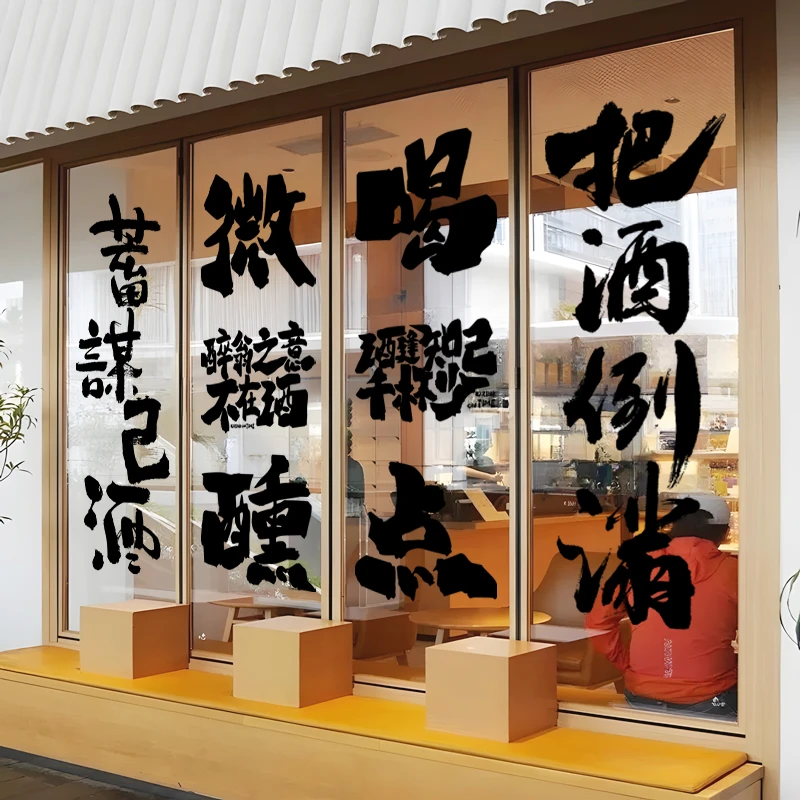 蓄謀己酒
微
醉翁之意
不在酒
醺
喝
酒逢知己
千杯少
点
把酒倒满